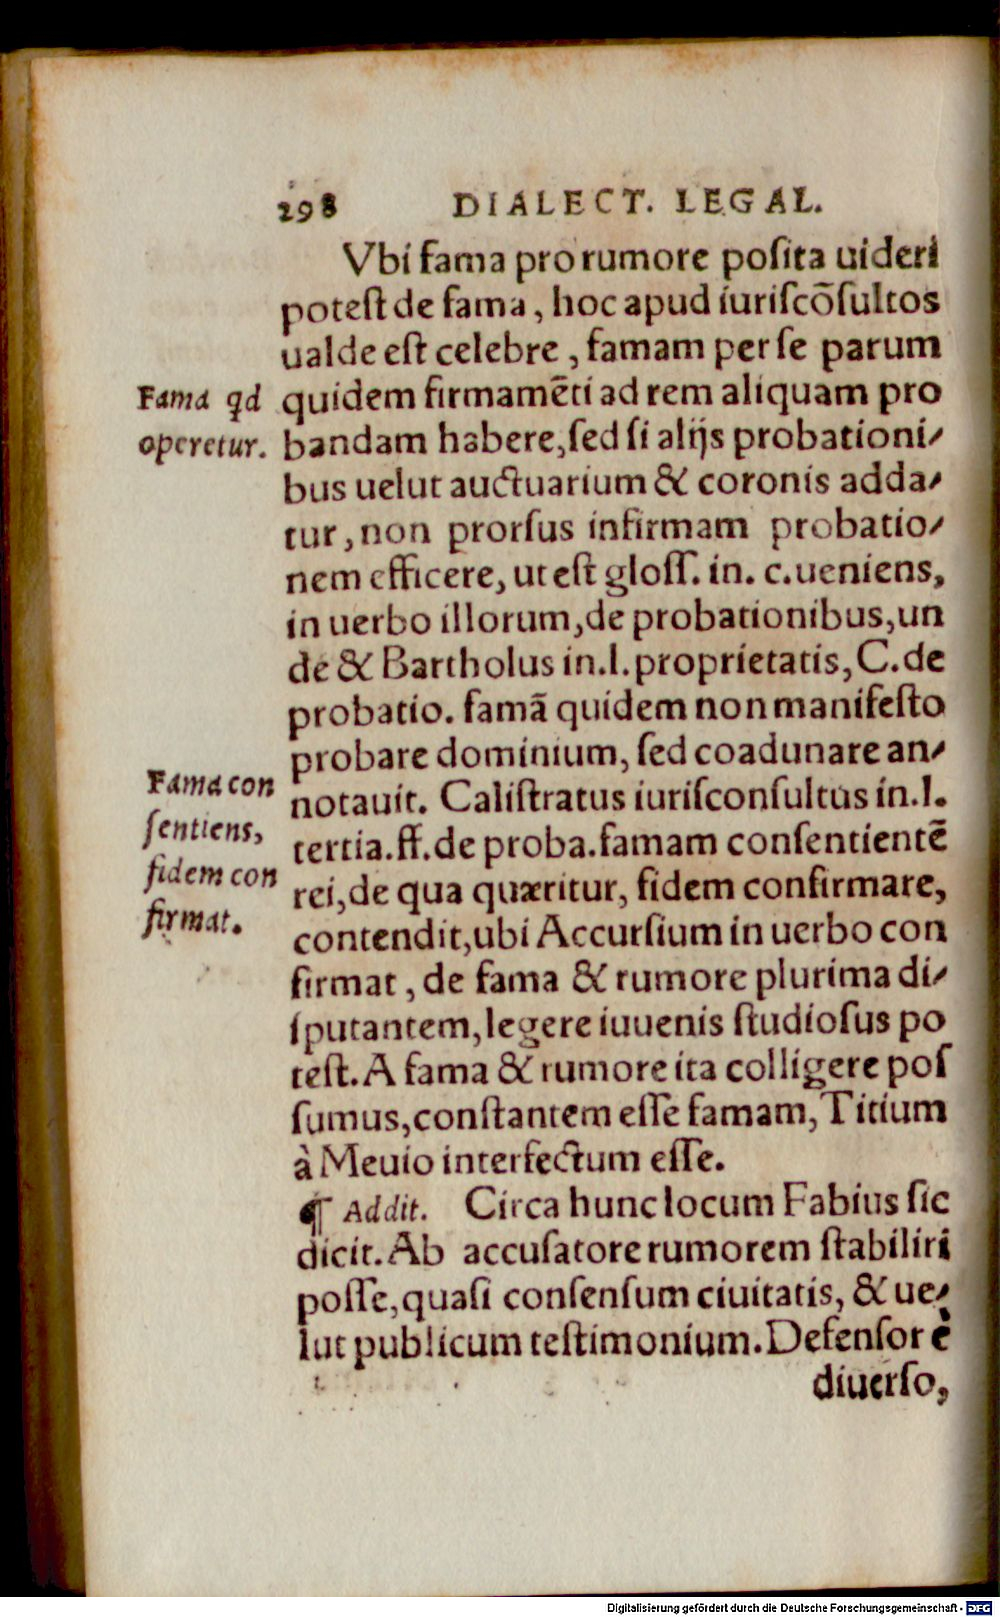 298 DIALECT. LEGAL.
Vbi fama pro rumore poſita uideri
poteſt de fama, hoc apud iuriſcõſultos
ualde eſt celebre, famam per ſe parum
Fama qd
quidem firmamẽti ad rem aliquam pro
operetur.
bandam habere, ſed ſi alijs probationi⸗
bus uelut auctuarium & coronis adda⸗
tur, non prorſus infirmam probatio⸗
nem efficere, ut eſt gloſſ. in. c. ueniens,
in uerbo illorum, de probationibus, un
de & Bartholus in. l. proprietatis, C. de
probatio. famã quidem non manifeſto
probare dominium, ſed coadunare an⸗
Fama con
notauit. Caliſtratus iuriſconſultus in. l.
ſentiens,
tertia. ff. de proba. famam conſentientẽ
fidem con
rei, de qua quæritur, fidem confirmare,
firmat.
contendit, ubi Accurſium in uerbo con
firmat, de fama & rumore plurima di⸗
ſputantem, legere iuuenis ſtudioſus po
teſt. A fama & rumore ita colligere poſ
ſumus, conſtantem eſſe famam, Titium
à Meuio interfectum eſſe.
¶ Addit. Circa hunc locum Fabius ſic
dicit. Ab accuſatore rumorem ſtabiliri
poſſe, quaſi conſenſum ciuitatis, & ue⸗
lut publicum teſtimonium. Defenſor è
diuerſo,
Digitalisierung gefördert durch die Deutsche Forschungsgemeinschaft - DFG